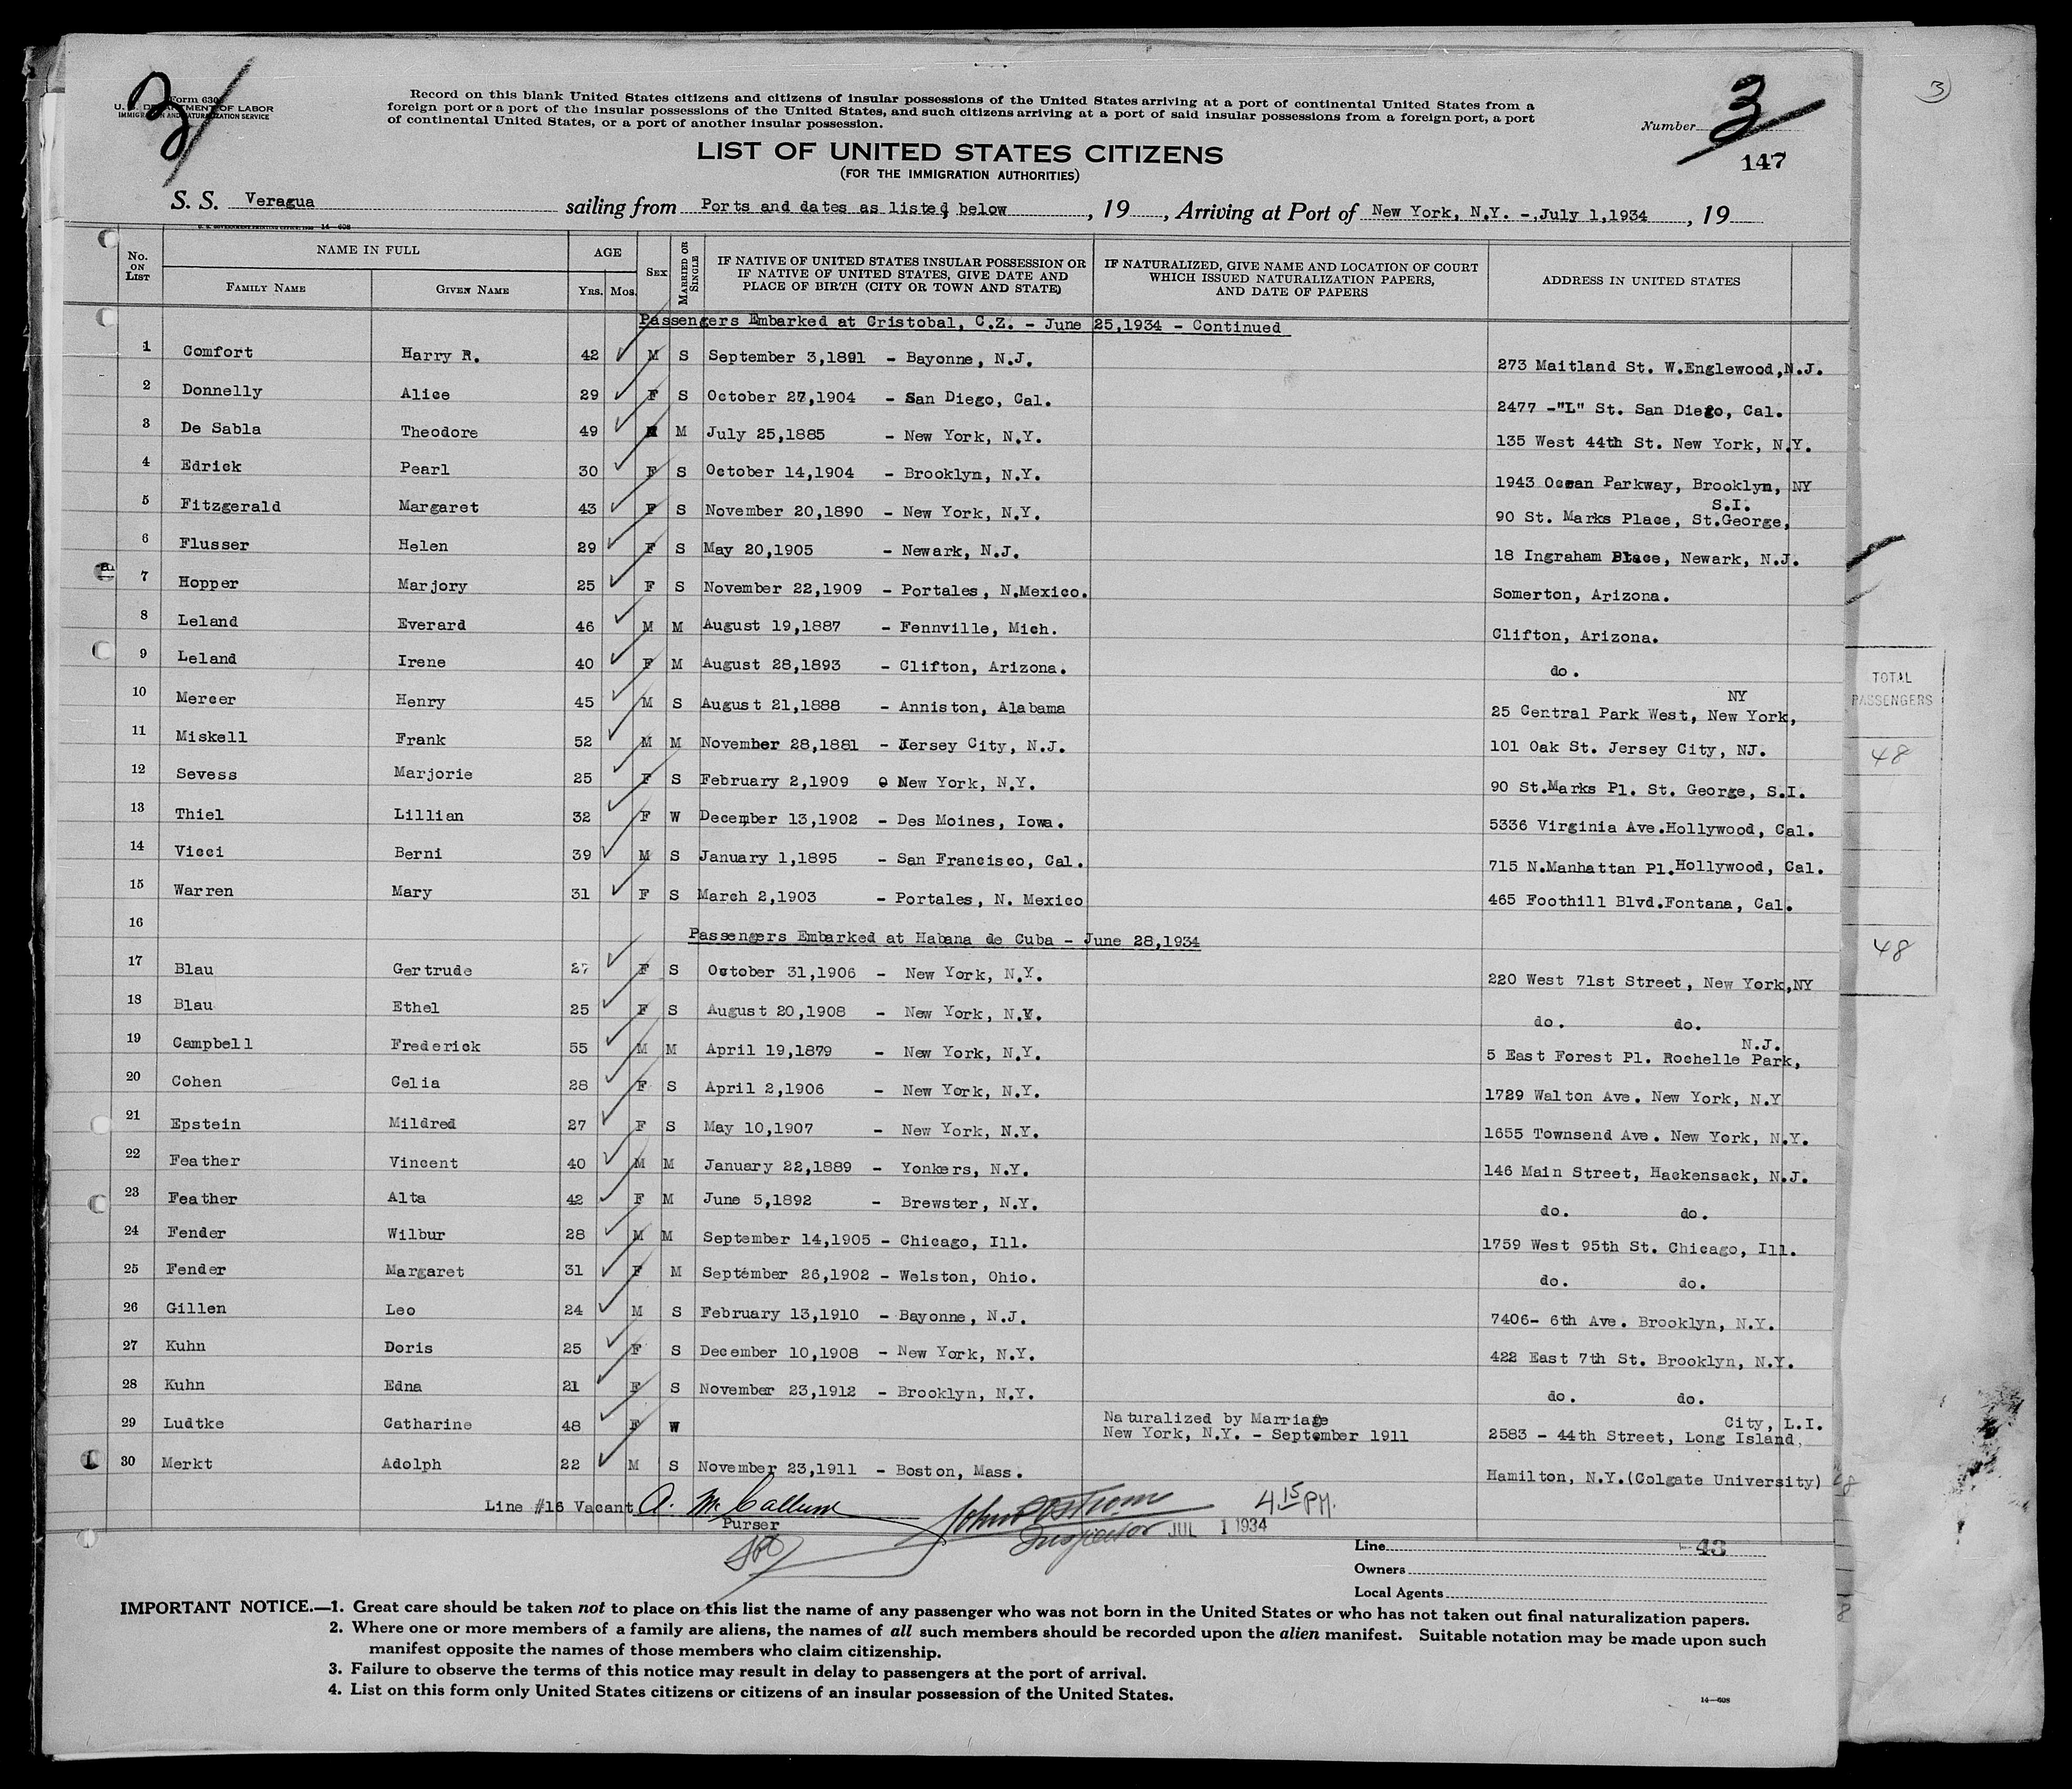 3
Form 630
U. S. DEPARTMENT OF LABOR
IMMIGRATION AND NATURALIZATION SERVICE
Record on this blank United States citizens and citizens of insular possessions of the United States arriving at a port of continental United States from a
foreign port or a port of the insular possessions of the United States, and such citizens arriving at a port of said insular possessions from a foreign port, a port
of continental United States, or a port of another insular possession.
Number 3
147
LIST OF UNITED STATES CITIZENS
(FOR THE IMMIGRATION AUTHORITIES)
S. S. Veragua sailing from Ports and dates as listed below , 19 , Arriving at Port of New York, N.Y. -,July 1,1934 , 19
U. S. GOVERNMENT PRINTING OFFICE: 14-608
No. ON LIST NAME IN FULL FAMILY NAME GIVEN NAME AGE YRS. MOS. SEX MARRIED OR SINGLE IF NATIVE OF UNITED STATES INSULAR POSSESSION OR IF NATIVE OF UNITED STATES, GIVE DATE AND PLACE OF BIRTH (CITY OR TOWN AND STATE) IF NATURALIZED, GIVE NAME AND LOCATION OF COURT WHICH ISSUED NATURALIZATION PAPERS, AND DATE OF PAPERS ADDRESS IN UNITED STATES
Passengers Embarked at Cristobal, C.Z. - June 25,1934 - Continued
1 Comfort Harry R. 42 M S September 3,1891 - Bayonne, N.J. 273 Maitland St. W.Englewood,N.J.
2 Donnelly Alice 29 F S October 27,1904 - San Diego, Cal. 2477 -"L" St. San Diego, Cal.
3 De Sabla Theodore 49 M M July 25,1885 - New York, N.Y. 135 West 44th St. New York, N.Y.
4 Edrick Pearl 30 F S October 14,1904 - Brooklyn, N.Y. 1943 Ocean Parkway, Brooklyn, NY
5 Fitzgerald Margaret 43 F S November 20,1890 - New York, N.Y. 90 St. Marks Place, St.George, S.I.
6 Flusser Helen 29 F S May 20,1905 - Newark, N.J. 18 Ingraham Place, Newark, N.J.
7 Hopper Marjory 25 F S November 22,1909 - Portales, N.Mexico. Somerton, Arizona.
8 Leland Everard 46 M M August 19,1887 - Fennville, Mich. Clifton, Arizona.
9 Leland Irene 40 F M August 28,1893 - Clifton, Arizona. do.
10 Mercer Henry 45 M S August 21,1888 - Anniston, Alabama 25 Central Park West, New York, NY
11 Miskell Frank 52 M M November 28,1881 - Jersey City, N.J. 101 Oak St. Jersey City, NJ.
12 Sevess Marjorie 25 F S February 2,1909 New York, N.Y. 90 St.Marks Pl. St. George, S.I.
13 Thiel Lillian 32 F W December 13,1902 - Des Moines, Iowa. 5336 Virginia Ave.Hollywood, Cal.
14 Vicci Berni 39 M S January 1,1895 - San Francisco, Cal. 715 N.Manhattan Pl.Hollywood, Cal.
15 Warren Mary 31 F S March 2,1903 - Portales, N. Mexico 465 Foothill Blvd.Fontana, Cal.
16 Passengers Embarked at Habana de Cuba - June 28,1934
17 Blau Gertrude 27 F S October 31,1906 - New York, N.Y. 220 West 71st Street, New York,NY
18 Blau Ethel 25 F S August 20,1908 - New York, N.Y. do. do.
19 Campbell Frederick 55 M M April 19,1879 - New York, N.Y. 5 East Forest Pl. Rochelle Park, N.J.
20 Cohen Celia 28 F S April 2,1906 - New York, N.Y. 1729 Walton Ave. New York, N.Y
21 Epstein Mildred 27 F S May 10,1907 - New York, N.Y. 1655 Townsend Ave. New York, N.Y.
22 Feather Vincent 40 M M January 22,1889 - Yonkers, N.Y. 146 Main Street, Hackensack, N.J.
23 Feather Alta 42 F M June 5,1892 - Brewster, N.Y. do. do.
24 Fender Wilbur 28 M M September 14,1905 - Chicago, Ill. 1759 West 95th St. Chicago, Ill.
25 Fender Margaret 31 F M September 26,1902 - Welston, Ohio. do. do.
26 Gillen Leo 24 M S February 13,1910 - Bayonne, N.J. 7406- 6th Ave. Brooklyn, N.Y.
27 Kuhn Doris 25 F S December 10,1908 - New York, N.Y. 422 East 7th St. Brooklyn, N.Y.
28 Kuhn Edna 21 F S November 23,1912 - Brooklyn, N.Y. do. do.
29 Ludtke Catharine 48 F W Naturalized by Marriage New York, N.Y. - September 1911 2583 - 44th Street, Long Island, City, L.I.
30 Merkt Adolph 22 M S November 23,1911 - Boston, Mass. Hamilton, N.Y.(Colgate University)
Line #16 Vacant A. McCallum
Purser
Inspector JUL 1 1934
4 15 PM.
Line 43
Owners
Local Agents
IMPORTANT NOTICE.—1. Great care should be taken not to place on this list the name of any passenger who was not born in the United States or who has not taken out final naturalization papers.
2. Where one or more members of a family are aliens, the names of all such members should be recorded upon the alien manifest. Suitable notation may be made upon such
manifest opposite the names of those members who claim citizenship.
3. Failure to observe the terms of this notice may result in delay to passengers at the port of arrival.
4. List on this form only United States citizens or citizens of an insular possession of the United States.
14-608
3
TOTAL
PASSENGERS
48
48